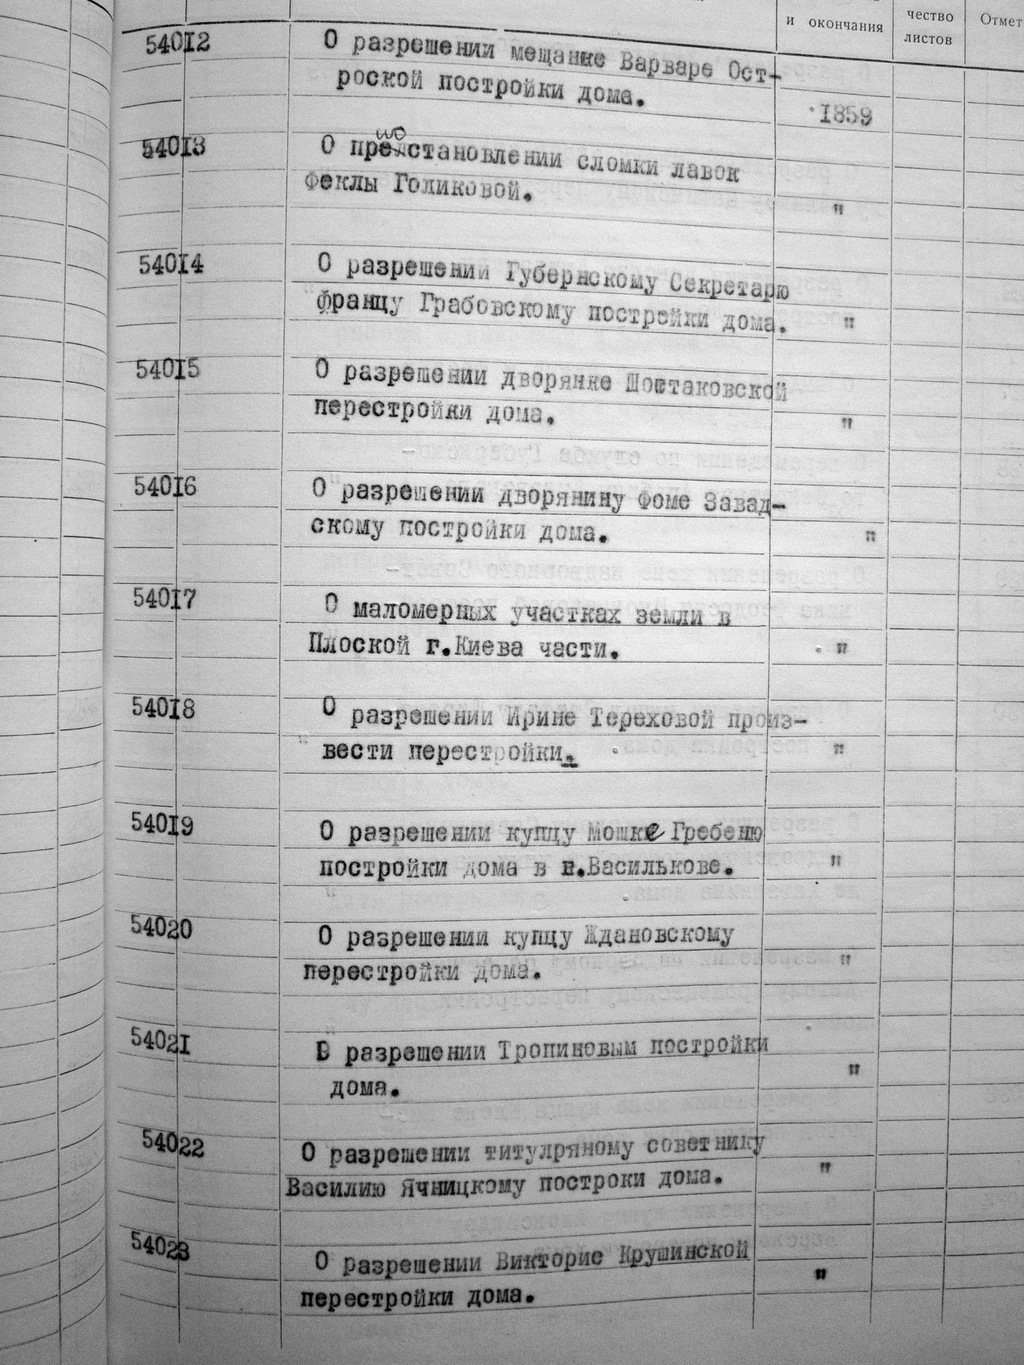 и окончания
чество
листов
Отмет
54012 О разрешении мещанке Варваре Ост-
роской постройки дома.
1859
54013 О приостановлении сломки лавок
Феклы Голиковой. "
54014 О разрешении Губернскому Секретарю
Францу Грабовскому пострейки дома. "
54015 О разрешении дворянке Шостаковской
перестройки дома. "
54016 О разрешении дворянину Фоме Завад-
скому постройки дома. "
54017 О маломерных участках земли в
Плоской г.Киева части. "
54018 О разрешении Ирине Тереховой произ-
вести перестройки. "
54019 О разрешении купцу Мошке Гребеню
постройки дома в в.Василькове. "
54020 О разрешении купцу Ждановскому
перестройки дома. "
54021 В разрешении Тропиновым постройки
дома. "
54022 О разрешении титулряному советнику
Василию Ячницкому построки дома. "
54023 О разрешении Викторие Крушинской
перестройки дома. "